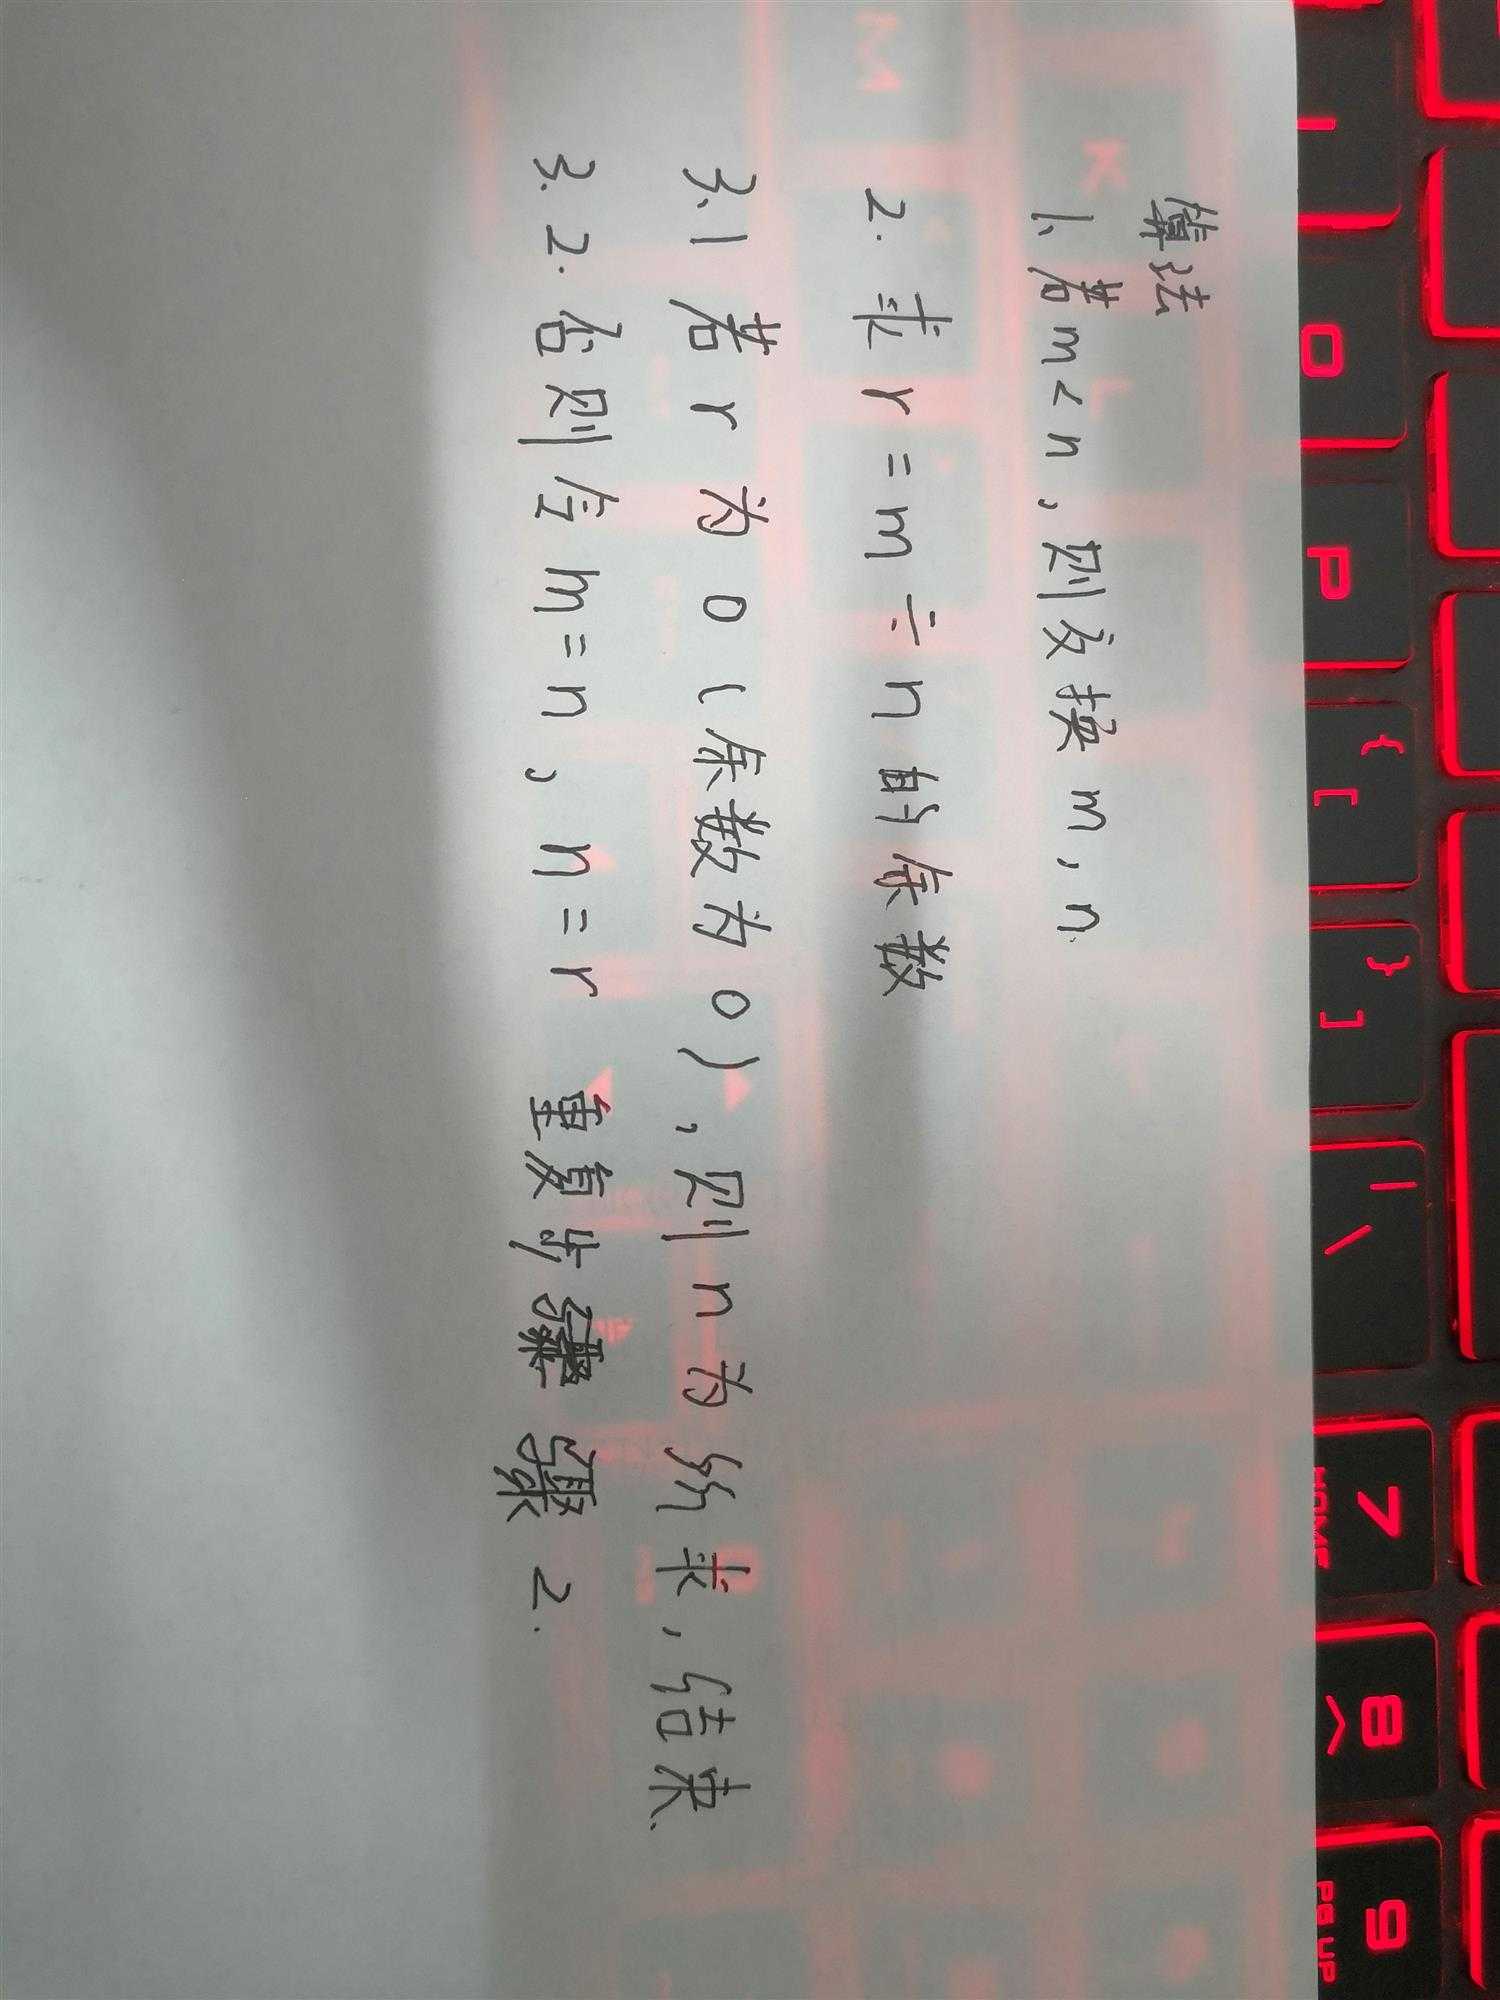 算法
1、若m<n,则交换m,n.
2. 求r=m÷n的余数
3.1 若r为0(余数为0),则n为所求,结束.
3.2.否则令m=n,n=r 重复步骤2.
O
P
{ [
} ]
| \
7 HOME
8 ^
9 PG UP
K
L